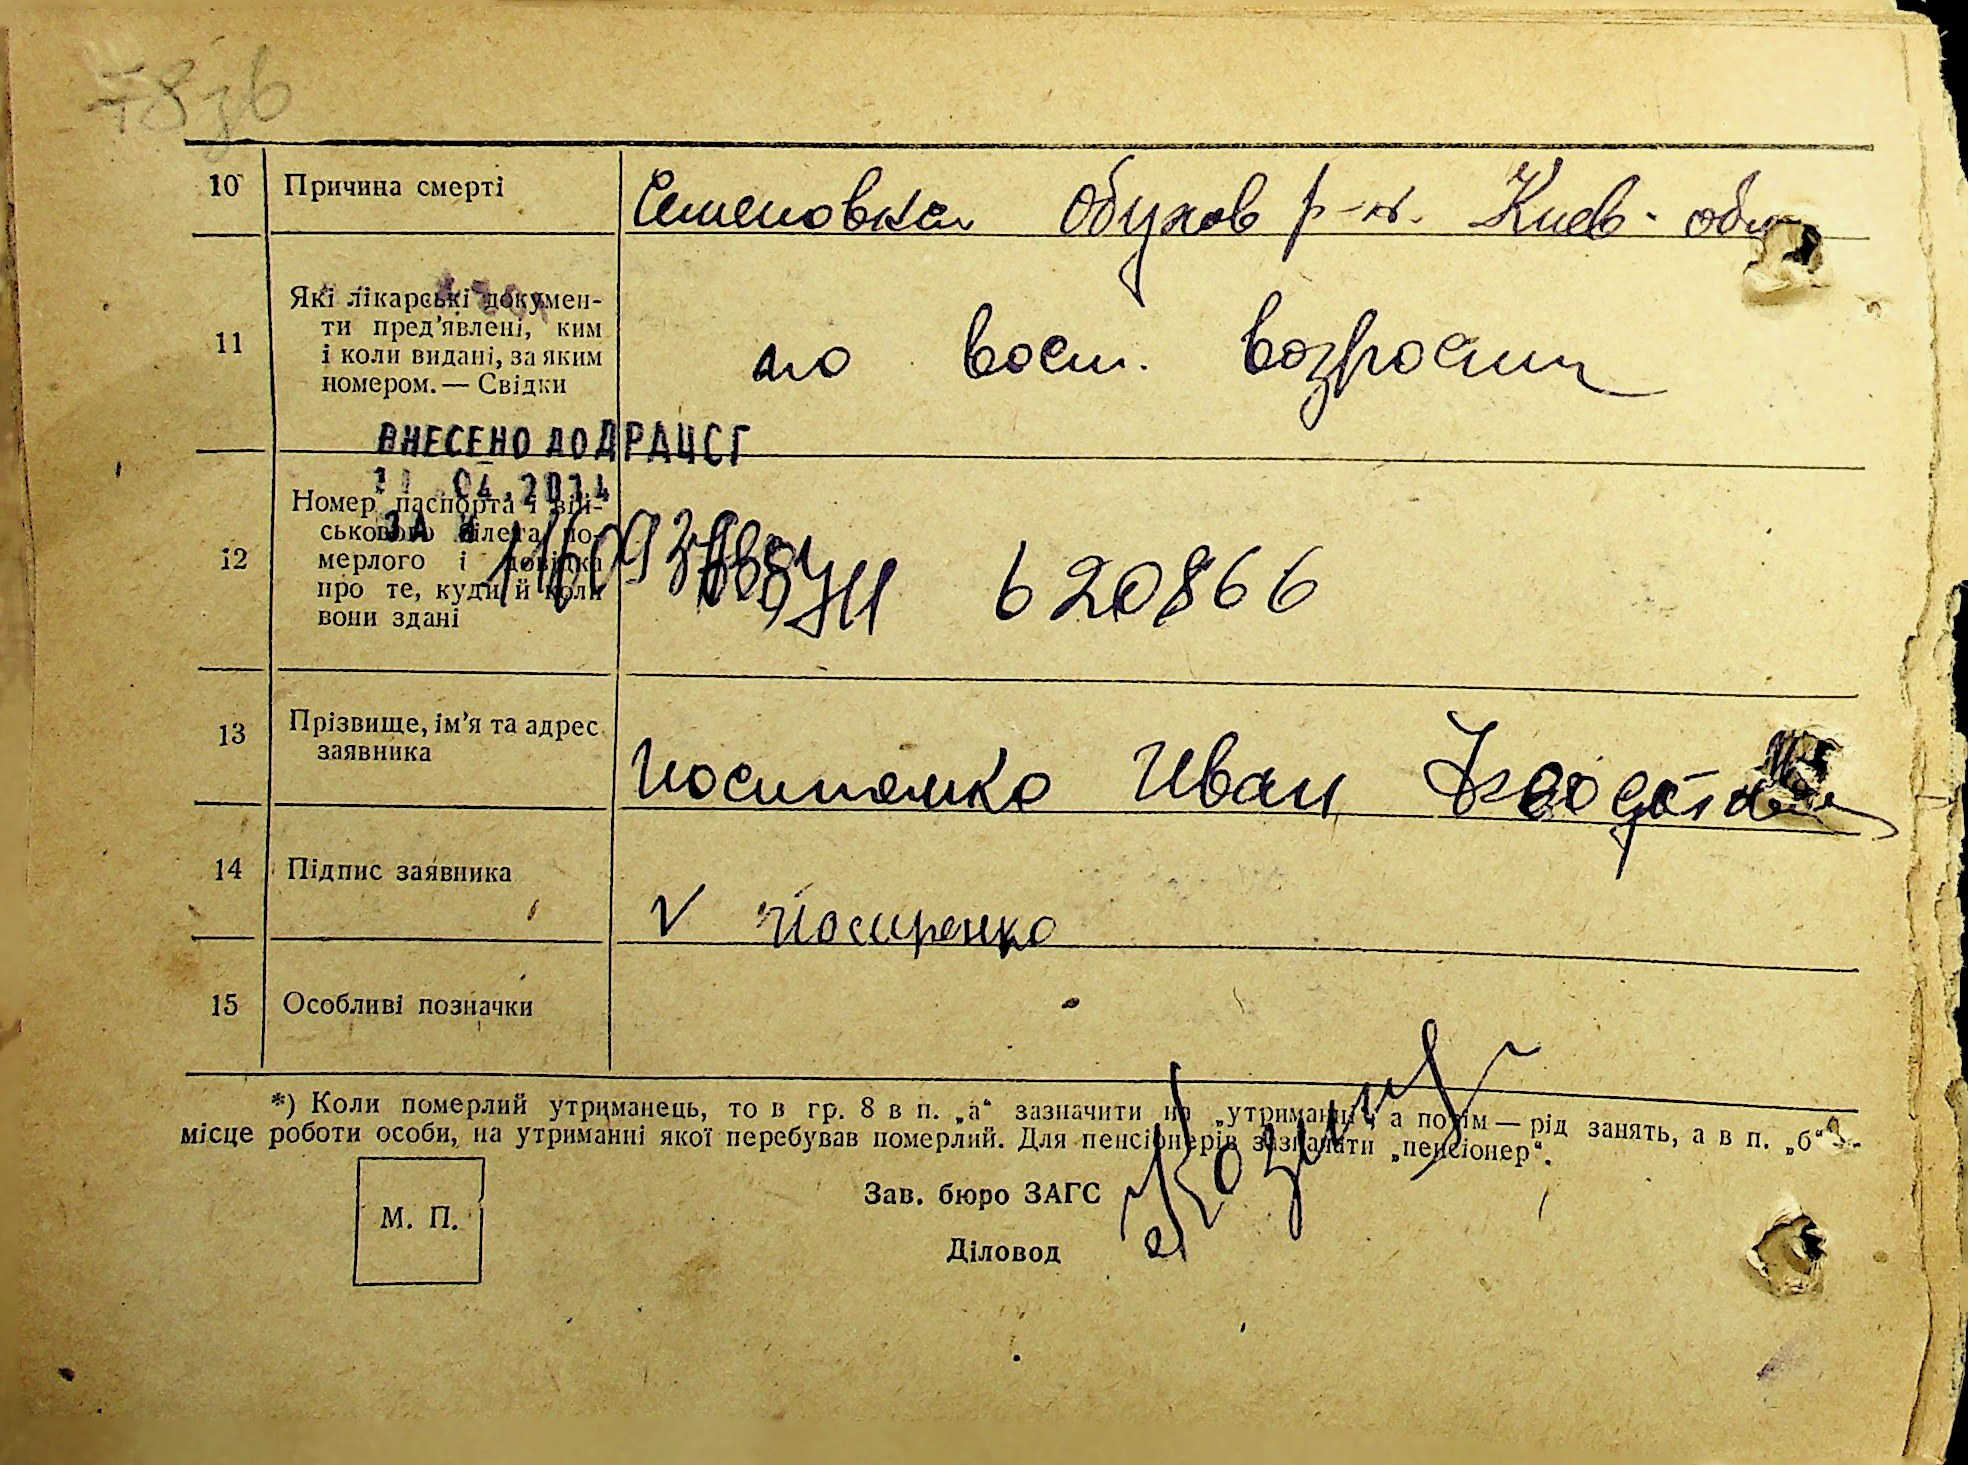 78зв
10 Причина смерті Семеновка Обухов р-н. Киев. обл
11 Які лікарські докумен-
ти пред'явлені, ким
і коли видані, за яким
номером. — Свідки
по восст. возрасту
ВНЕСЕНО ДО ДРАЦСГ
04.2014
ЗА №
12 Номер паспорта і вій-
ськового білета по-
мерлого і довідка
про те, куди й коли
вони здані
620866
13 Прізвище, ім'я та адрес
заявника
Иван
14 Підпис заявника V
15 Особливі позначки
*) Коли померлий утриманець, то в гр. 8 в п. „а“ зазначити на „утриманні“, а потім — рід занять, а в п. „б“ —
місце роботи особи, на утриманні якої перебував померлий. Для пенсіонерів зазначати „пенсіонер“.
Зав. бюро ЗАГС
М. П.
Діловод